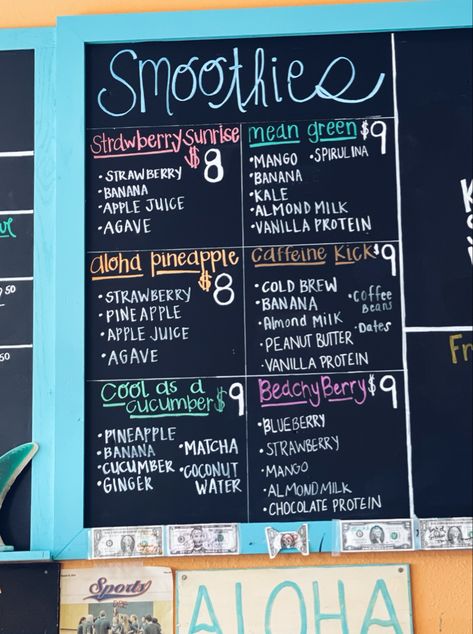 Smoothies
Strawberry Sunrise
$8
• STRAWBERRY
• BANANA
• APPLE JUICE
• AGAVE
mean green $9
• MANGO • SPIRULINA
• BANANA
• KALE
• ALMOND MILK
• VANILLA PROTEIN
aloha pineapple
$8
• STRAWBERRY
• PINEAPPLE
• APPLE JUICE
• AGAVE
Caffeine Kick $9
• COLD BREW
• BANANA
• Almond Milk
• PEANUT BUTTER
• VANILLA PROTEIN
• Coffee
Beans
• Dates
Cool as a
cucumber $9
• PINEAPPLE
• BANANA
• CUCUMBER
• GINGER
• MATCHA
• COCONUT
WATER
Beachy Berry $9
• BLUEBERRY
• STRAWBERRY
• MANGO
• ALMOND MILK
• CHOCOLATE PROTEIN
Fr
50
50
Sports
ALOHA